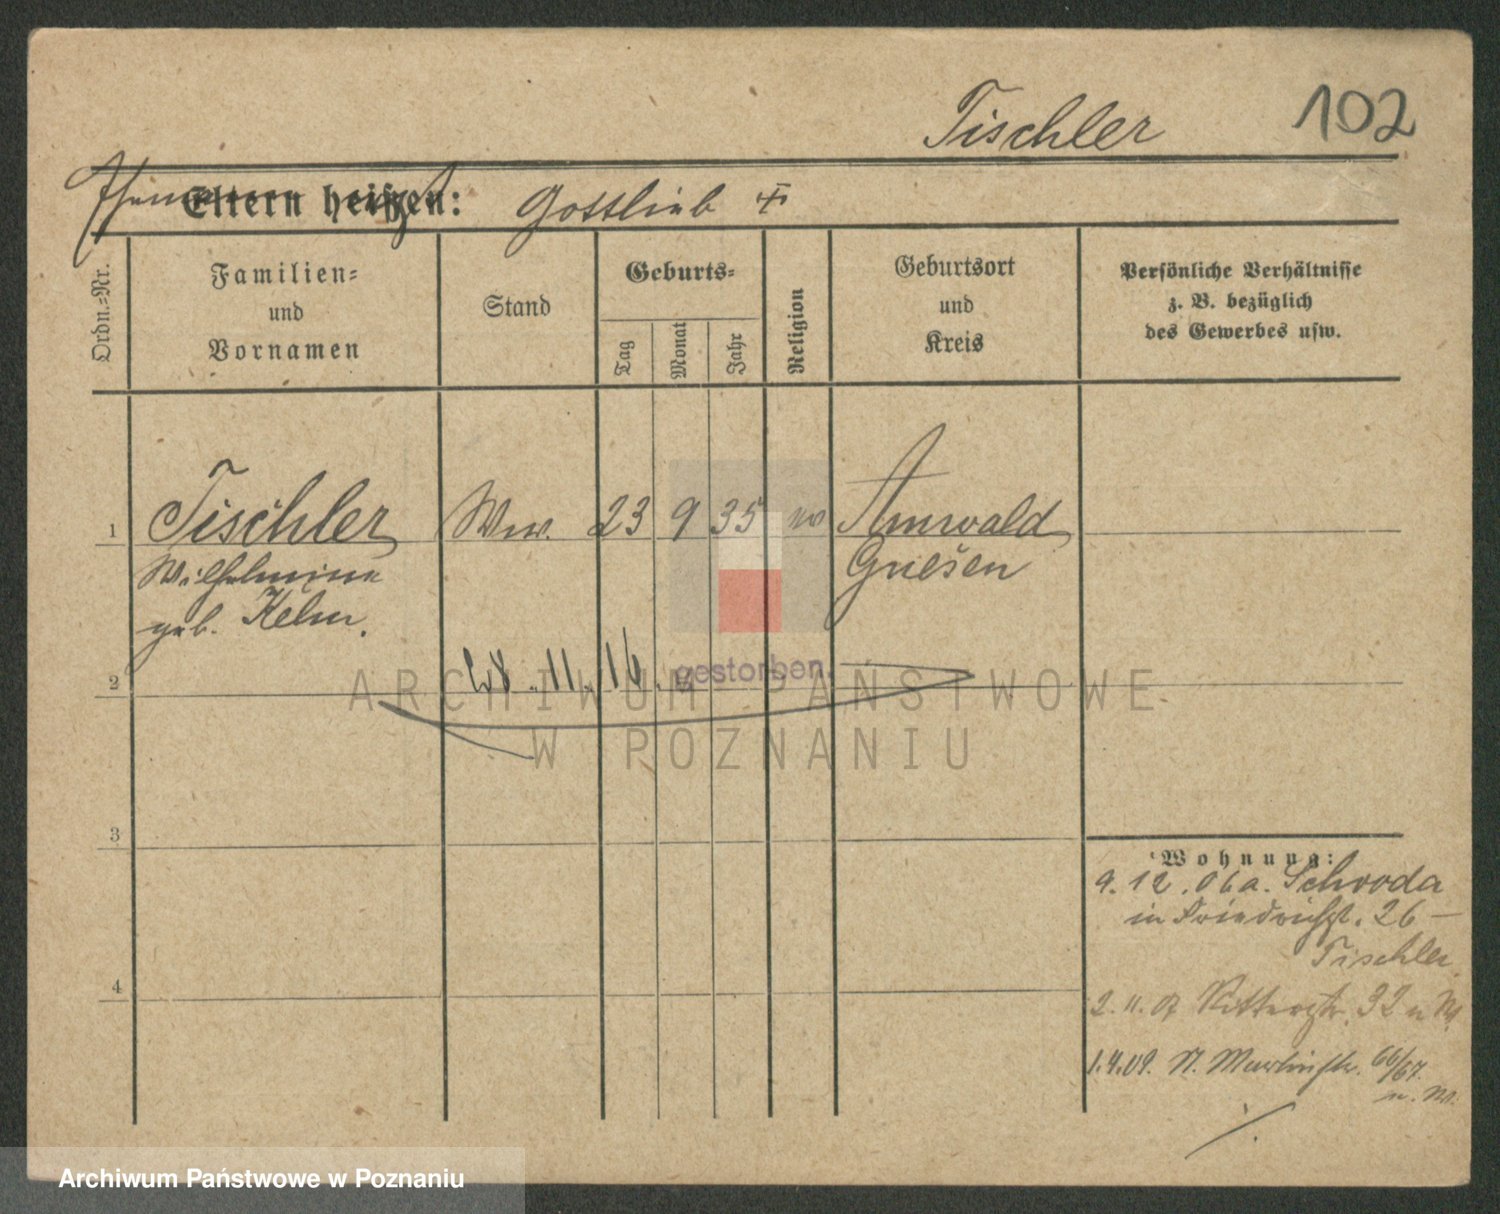 Tischler 102
Ehemann
Eltern heißen: Gottlieb ✝
Ordn.-Nr.
Familien-
und
Vornamen
Stand
Geburts-
Tag
Monat
Jahr
Religion
Geburtsort
und
Kreis
Persönliche Verhältnisse
z. B. bezüglich
des Gewerbes usw.
1 Tischler Ww. 23 9 35 ev Arnwald
Wilhelmine Gnesen
geb. Kelm.
2 11. 16. gestorben.
ARCHIWUM PAŃSTWOWE
W POZNANIU
3
Wohnung:
9.12.06 a. Schroda
in Friedrichst. 26 –
Tischler
4
2.11.07 Ritterstr. 32
1.4.09. St. Martinstr. 66/67.
Archiwum Państwowe w Poznaniu